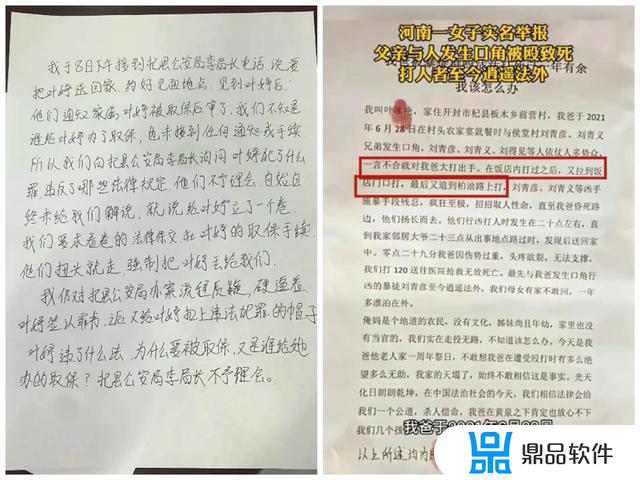 我于8日下午接到杞县公安局李局长电话,说要
把叶婷送回家,约好见面地点,见到叶婷后,
他们通知家属叶婷被取保后审了,我们不知是
谁给叶婷办了取保,也未接到任何通知或手续
所以我们向杞县公安局李局长询问叶婷犯了什么
罪,违反了哪些法律规定,他们不予理会,自始自
终未给我们解说,就说给叶婷立了个卷.
我们要求看卷的法律条文和叶婷的取保手续.
他们扭头就走,强制把叶婷丢给我们.
我们对杞县公安局办案流程质疑,硬逼着
叶婷签认罪书,之后又给叶婷扣上违法犯罪的帽子
叶婷违了什么法,为什么要被取保,又是谁给她
办的取保?杞县公安局李局长不予理会.
河南一女子实名举报
父亲与人发生口角被殴致死
打人者至今逍遥法外
年有余
我该怎么办
我叫叶冰艳,家住开封市杞县板木乡前营村,我爸于2021
年6月28日在村头农家宴就餐时与侯堂村刘青彦、刘青义
兄弟发生口角,刘青彦、刘青义、刘得见等人依仗人多势众,
一言不合就对我爸大打出手。在饭店内打过之后,又拉到饭
店门口打,最后又追到柏油路上打,刘青彦、刘青义等凶手
施暴手段残忍,疯狂至极,招招取人性命,直至我爸昏死路
边,他们扬长而去。他们行凶打人时发生在二十点左右,直
到我家邻居大爷二十三点从出事地点路过时,发现后送回家
中。零点二十九分我爸因伤势过重,头疼欲裂,无法支撑,
我们打120送往医院抢救无效死亡。最先与我爸发生口角行
凶的暴徒刘青彦至今逍遥法外,我们母女有家不敢回,一年
多漂泊在外。
俺妈是个地道的农民,没有文化,姊妹尚且年幼,家里也没
有当官的,我们实在走投无路,不知道该怎么办。今天是我
爸他老人家一周年祭日,不敢想我爸在遭受殴打时有多么绝
望多么无助,我家的天塌了,始终不敢相信这是事实。光天
化日朗朗乾坤,在中国法治社会的今天,我们相信法律会给
我们一个公道,杀人偿命,我爸在黄泉之下肯定也放心不下
我们几个孩
我爸于2021年6月28日
以上所述均为
鼎品软件